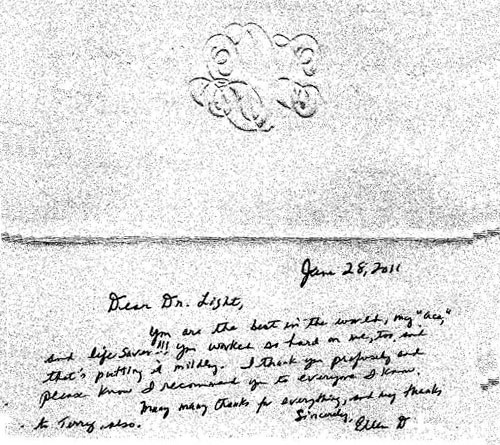 June 28, 2011
Dear Dr. Light,
You are the best in the world, my "ace,"
and life saver!!! You worked so hard on me, too, and
that's putting it mildly. I thank you profusely and
please know I recommend you to everyone I know.
Many many thanks for everything, and my thanks
to Terry, also.
Sincerely,
Ellen D